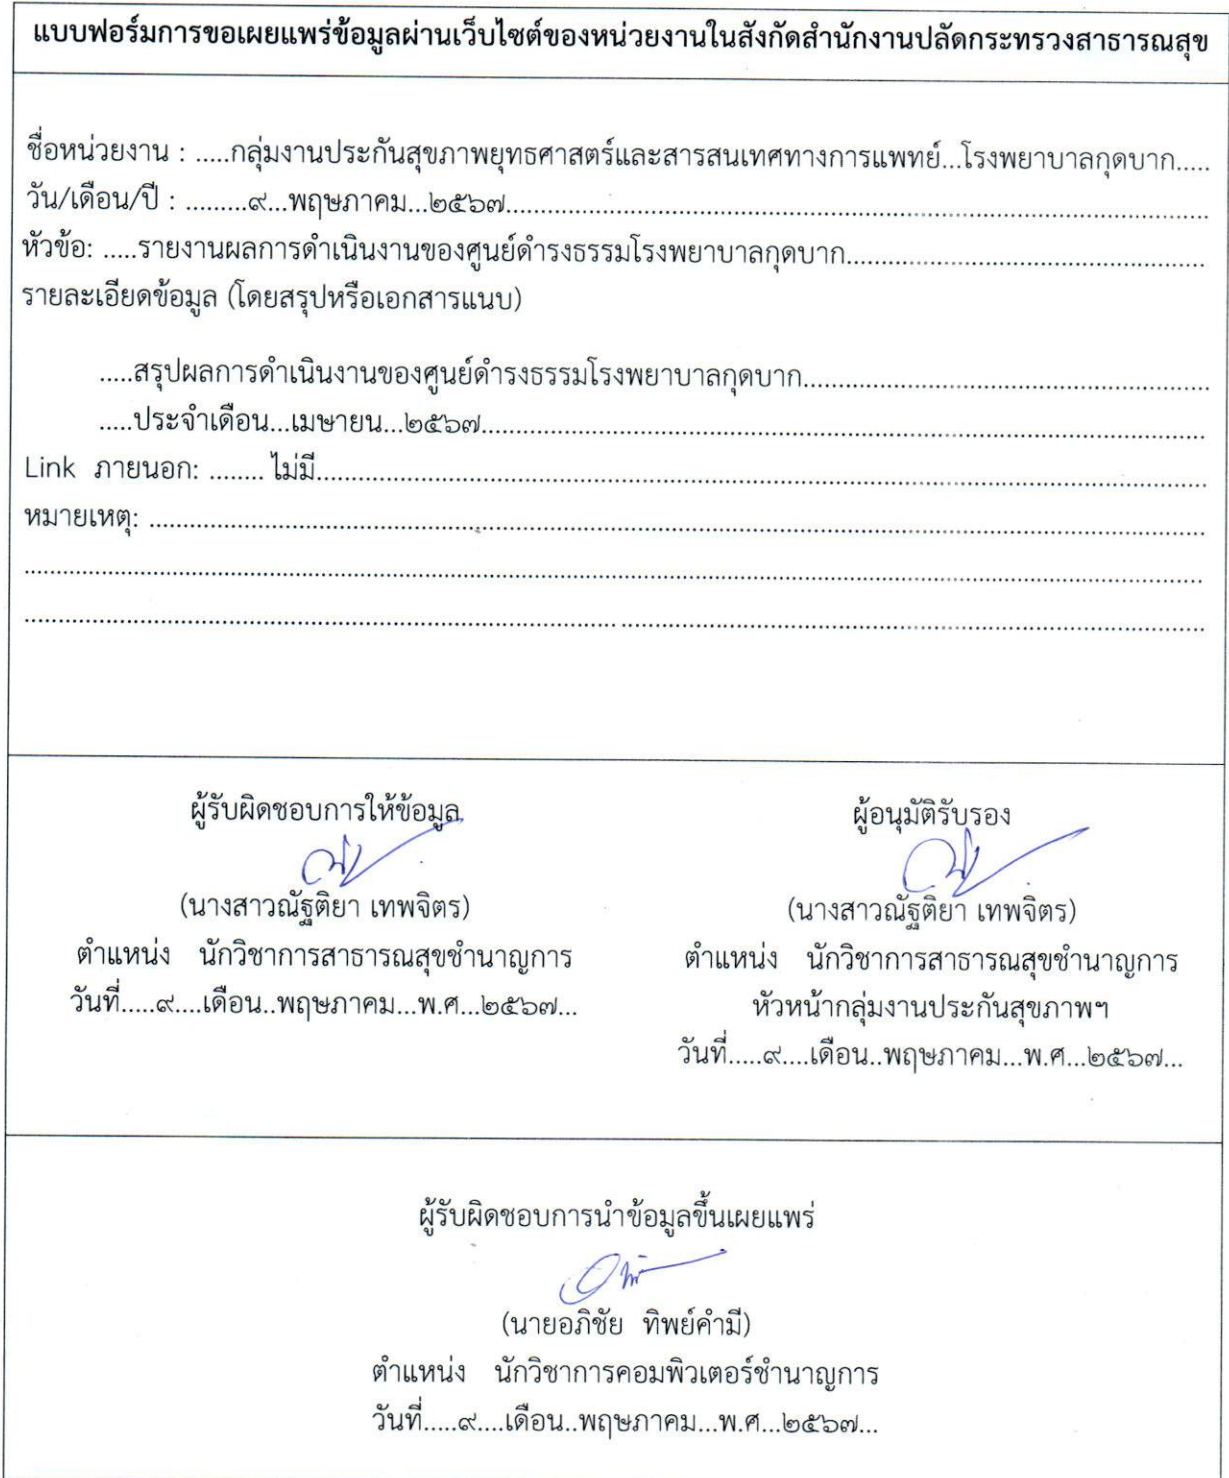 แบบฟอร์มการขอเผยแพร่ข้อมูลผ่านเว็บไซต์ของหน่วยงานในสังกัดสำนักงานปลัดกระทรวงสาธารณสุข
ชื่อหน่วยงาน : .....กลุ่มงานประกันสุขภาพยุทธศาสตร์และสารสนเทศทางการแพทย์...โรงพยาบาลกุดบาก.....
วัน/เดือน/ปี : .........๙...พฤษภาคม...๒๕๖๗.....
หัวข้อ: .....รายงานผลการดำเนินงานของศูนย์ดำรงธรรมโรงพยาบาลกุดบาก.....
รายละเอียดข้อมูล (โดยสรุปหรือเอกสารแนบ)
.....สรุปผลการดำเนินงานของศูนย์ดำรงธรรมโรงพยาบาลกุดบาก.....
.....ประจำเดือน...เมษายน...๒๕๖๗.....
Link ภายนอก: ........ ไม่มี.....
หมายเหตุ: .....
ผู้รับผิดชอบการให้ข้อมูล
(นางสาวณัฐติยา เทพจิตร)
ตำแหน่ง นักวิชาการสาธารณสุขชำนาญการ
วันที่.....๙....เดือน..พฤษภาคม...พ.ศ...๒๕๖๗...
ผู้อนุมัติรับรอง
(นางสาวณัฐติยา เทพจิตร)
ตำแหน่ง นักวิชาการสาธารณสุขชำนาญการ
หัวหน้ากลุ่มงานประกันสุขภาพฯ
วันที่.....๙....เดือน..พฤษภาคม...พ.ศ...๒๕๖๗...
ผู้รับผิดชอบการนำข้อมูลขึ้นเผยแพร่
(นายอภิชัย ทิพย์คำมี)
ตำแหน่ง นักวิชาการคอมพิวเตอร์ชำนาญการ
วันที่.....๙....เดือน..พฤษภาคม...พ.ศ...๒๕๖๗...